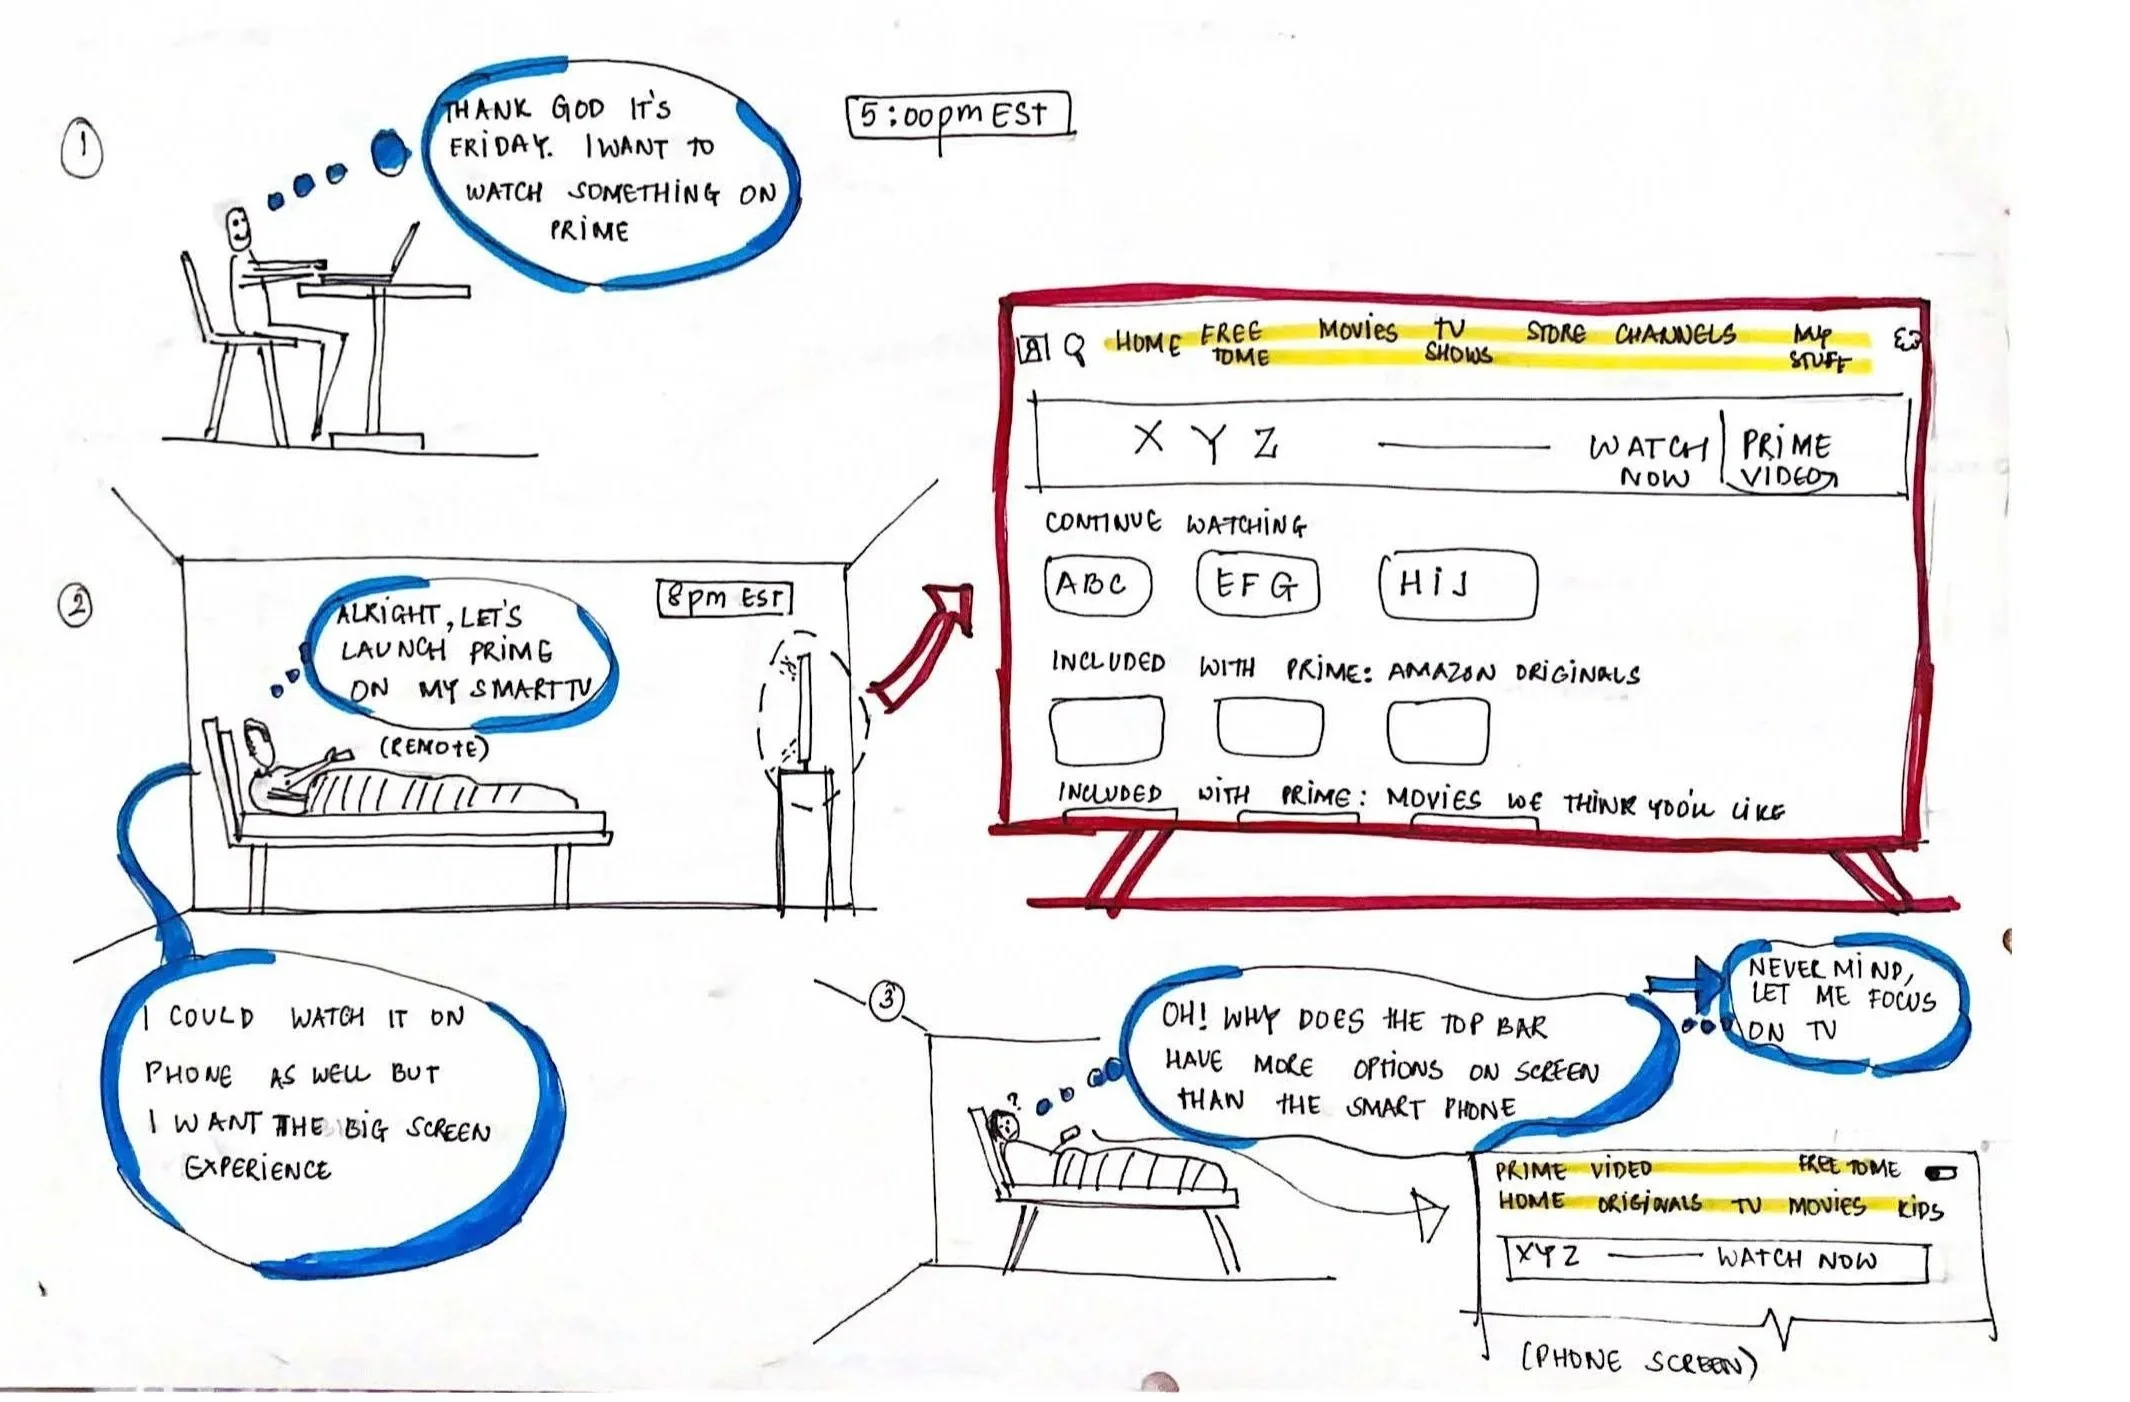 1
THANK GOD IT'S
FRIDAY. I WANT TO
WATCH SOMETHING ON
PRIME
5:00pm EST
2
ALRIGHT, LET'S
LAUNCH PRIME
ON MY SMART TV
(REMOTE)
8pm EST
I COULD WATCH IT ON
PHONE AS WELL BUT
I WANT THE BIG SCREEN
EXPERIENCE
HOME FREE TOME MOVIES TV SHOWS STORE CHANNELS MY STUFF
X Y Z WATCH NOW PRIME VIDEO
CONTINUE WATCHING
ABC EFG HIJ
INCLUDED WITH PRIME: AMAZON ORIGINALS
INCLUDED WITH PRIME: MOVIES WE THINK YOU'LL LIKE
3
?
OH! WHY DOES THE TOP BAR
HAVE MORE OPTIONS ON SCREEN
THAN THE SMART PHONE
NEVER MIND,
LET ME FOCUS
ON TV
PRIME VIDEO FREE TOME
HOME ORIGINALS TV MOVIES KIDS
XYZ WATCH NOW
(PHONE SCREEN)